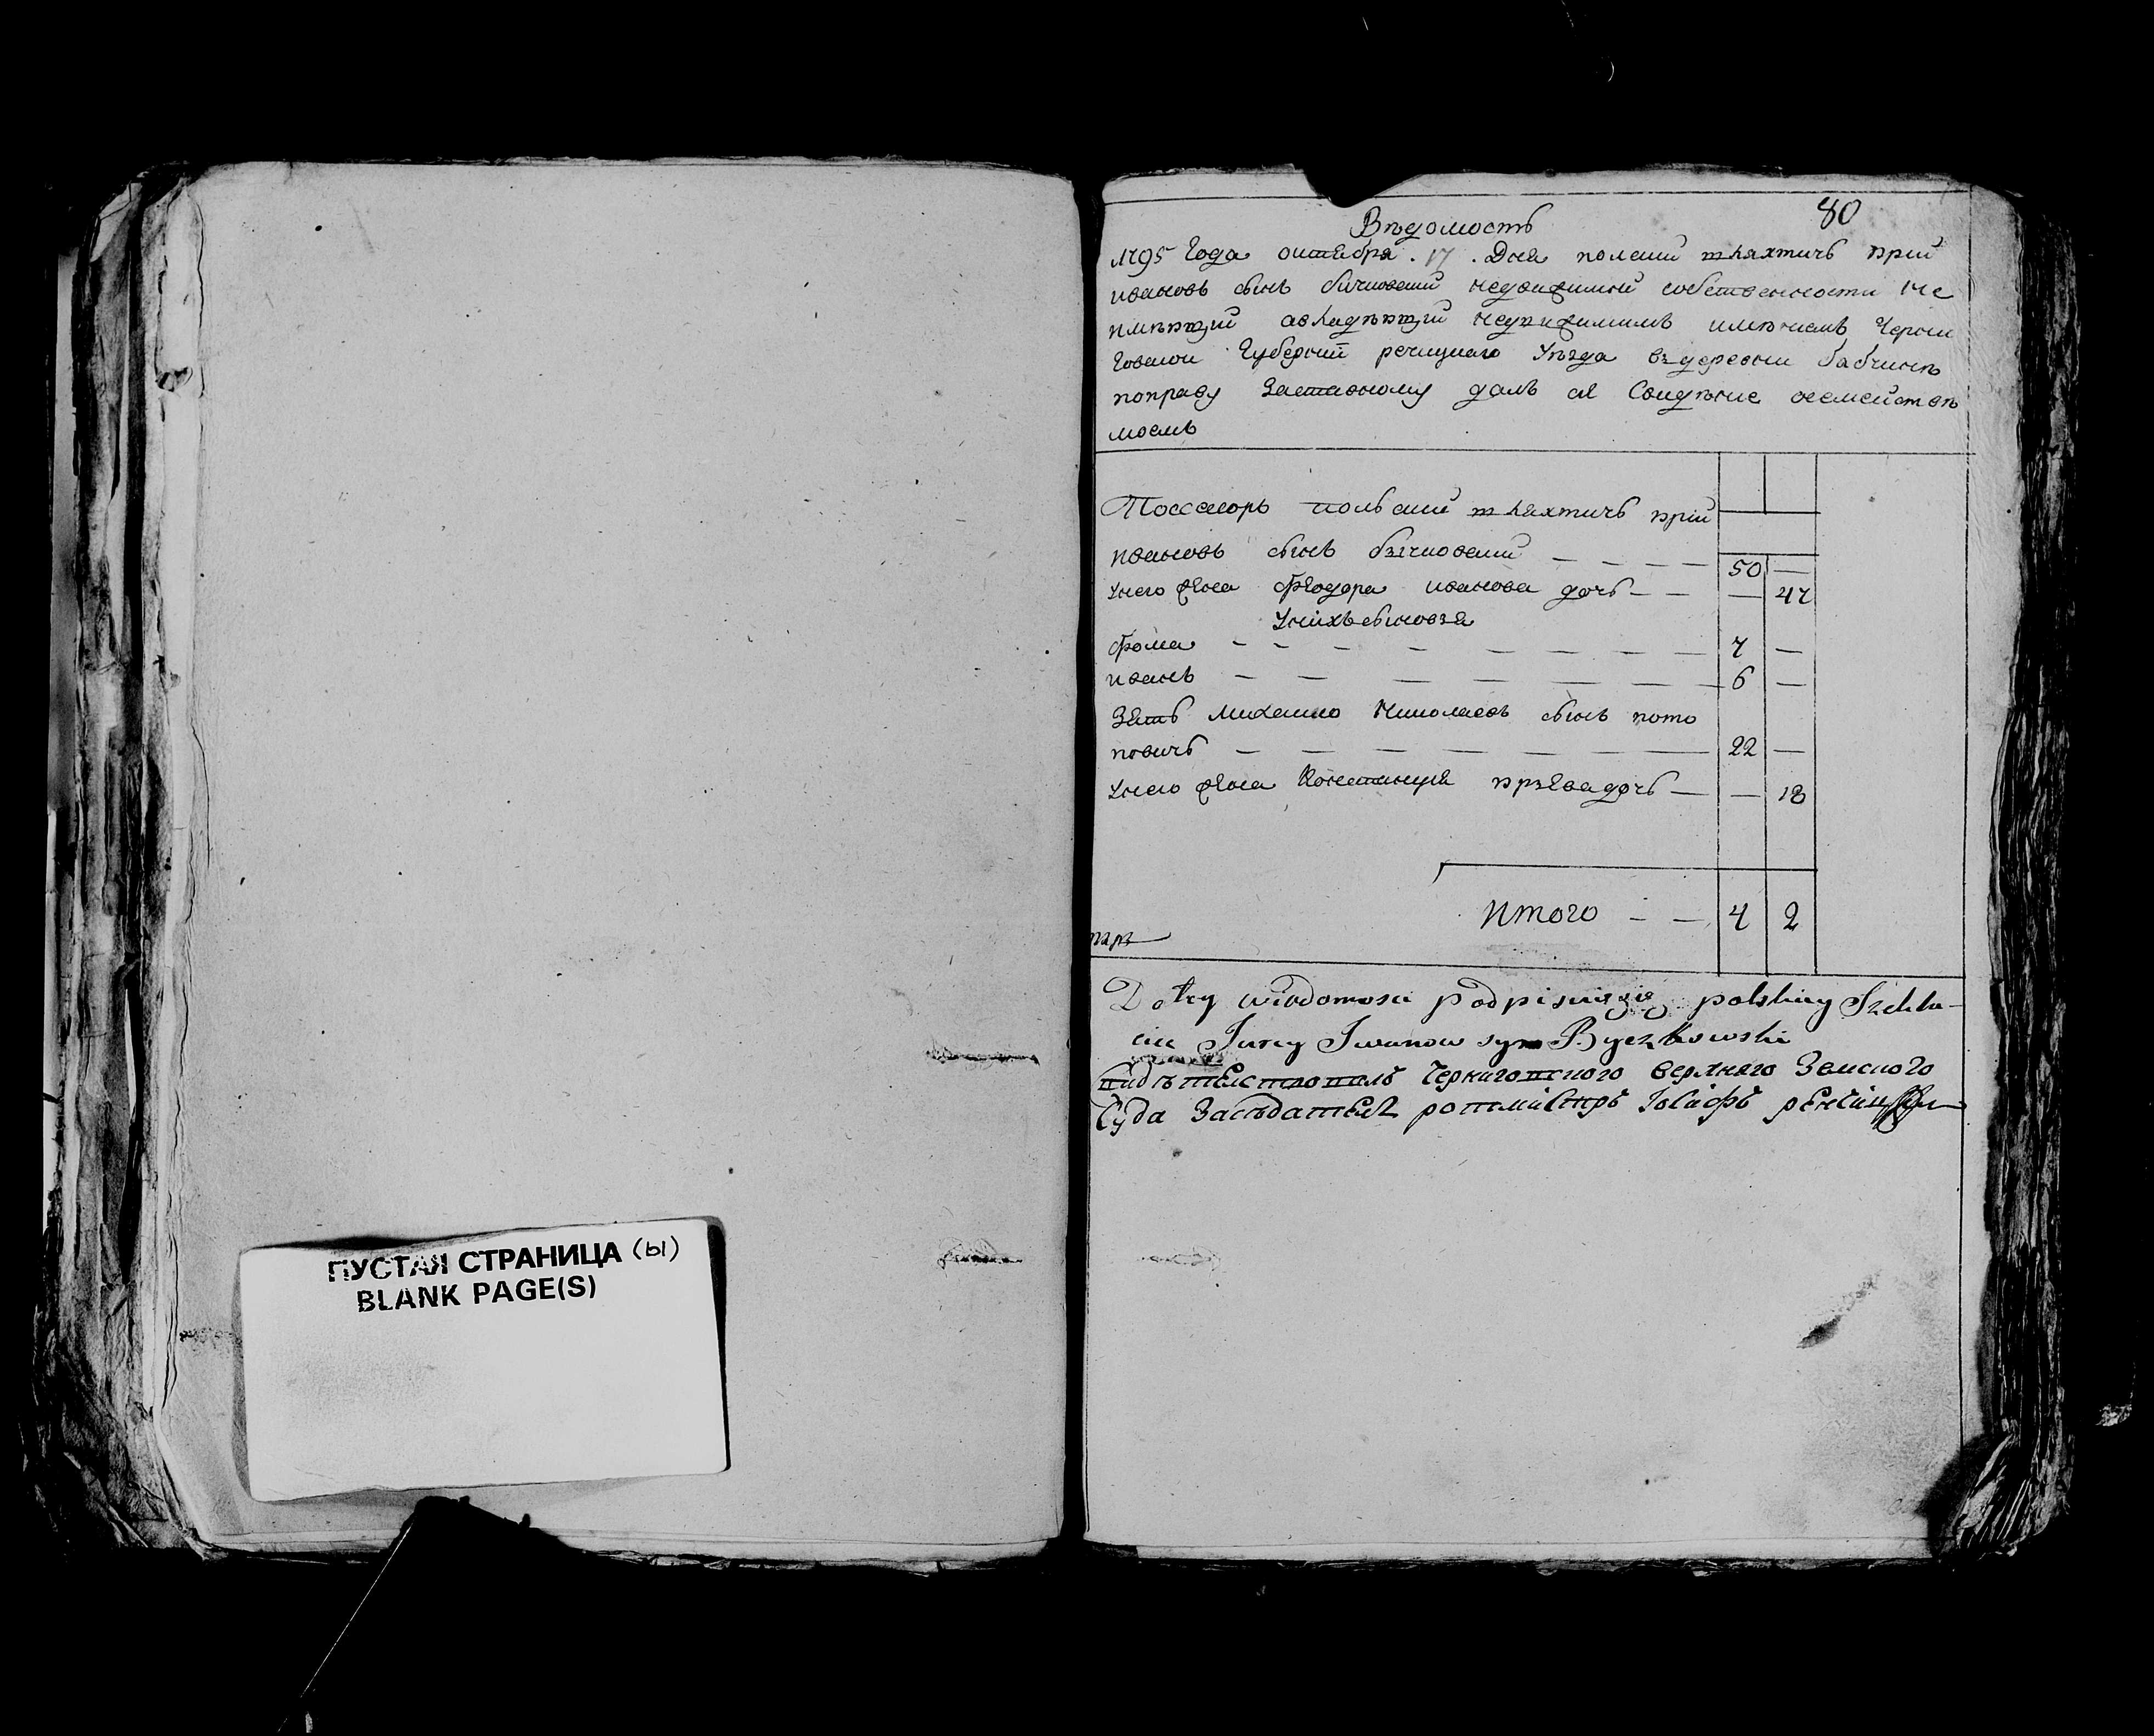 ПУСТАЯ СТРАНИЦА (ы)
BLANK PAGE(S)
80
Вѣдомость
1795 Года октября . 17 . Дня полский шляхтичъ юрий
ивановъ сынъ бычковский недвижимой собственности не
имѣющий авладѣющий недвижимимъ имѣниемъ Черни
говской Губерний речицкаго Уѣзда вдеревни бабчинѣ
поправу Заставному далъ сѣ Свидѣние осемействѣ
моемъ
Поссесоръ польский шляхтичъ юрий
ивановъ сынъ бычковский — — — — 50 —
Унего жена Феодора иванова дочь — — — 47
Унихъ сыновья
Фома — — — — — — — — 7 —
иванъ — — — — — — — 6 —
Зять Михайло Николаевъ сынъ пото
повичъ — — — — — — 22 —
Унего жена Констанция юрьева дочь — — 18
Итого — — 4 2
Do tey wiadomosci podpisuię się polskiey Szlchcic Jurey Iwanow syn Byczkowski
Свидѣтелствовалъ Черниговского верхнего Земского
Суда Засѣдатель ротмистръ